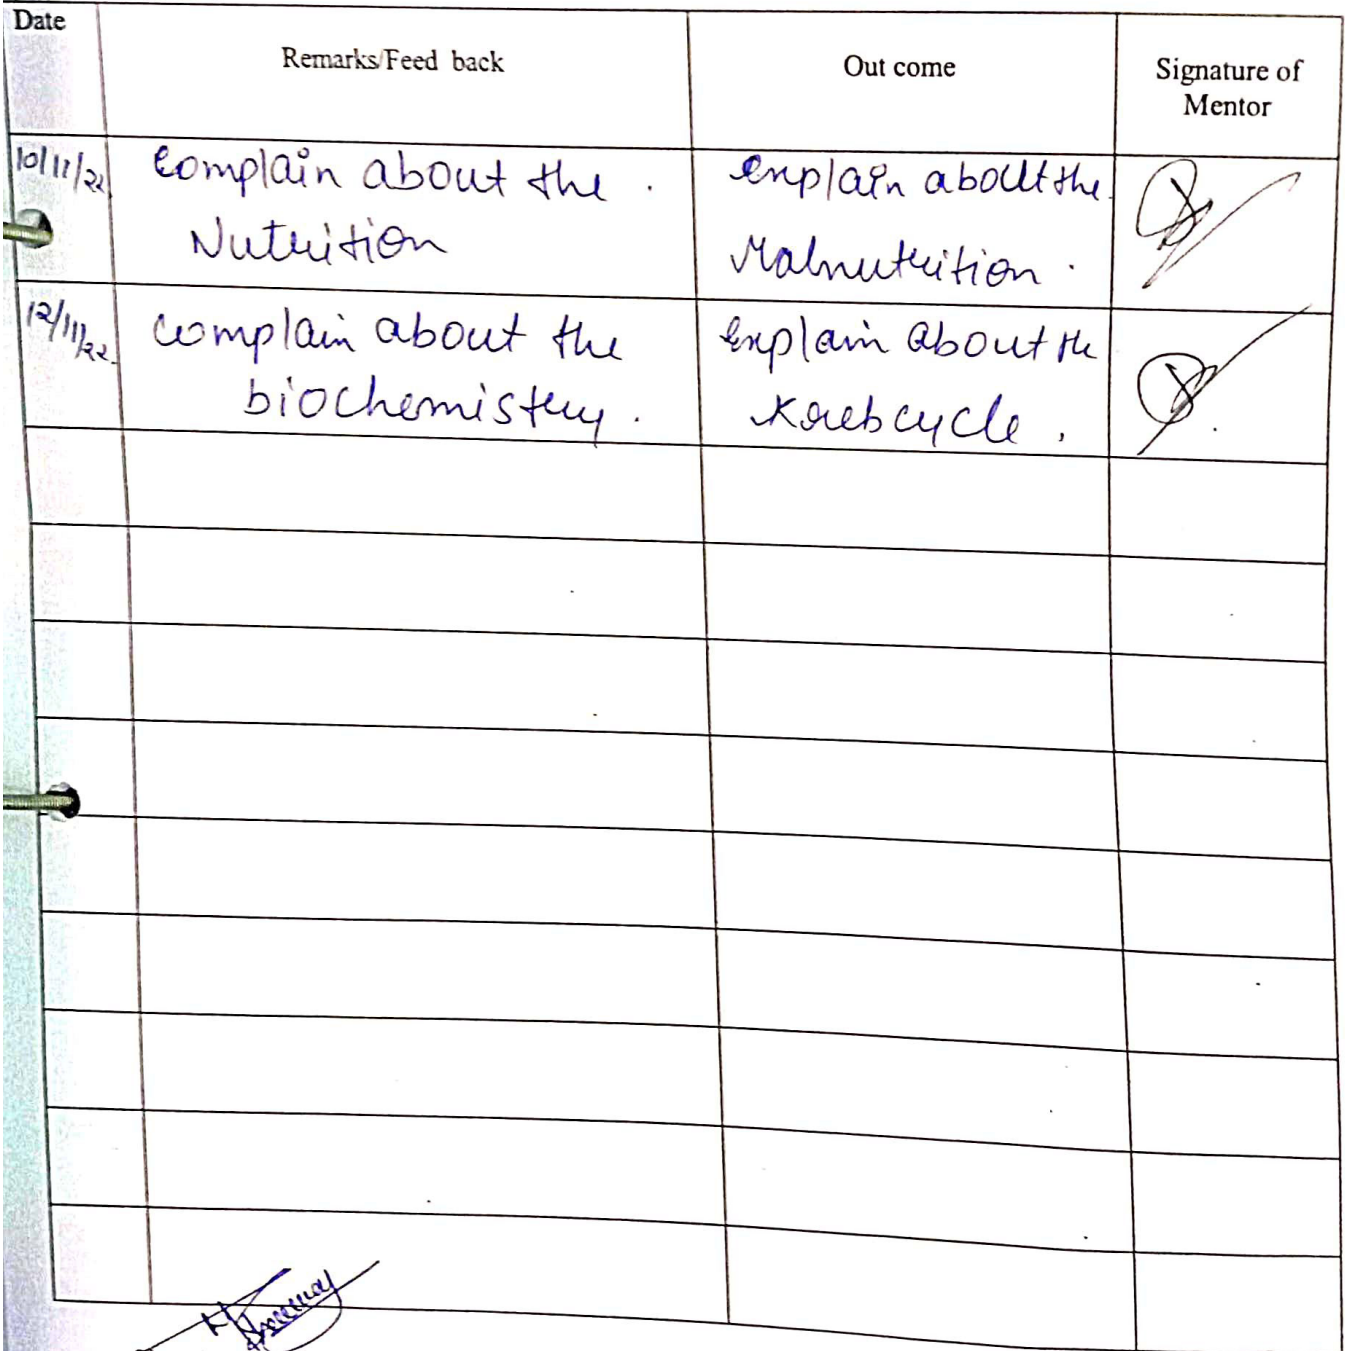 Date
Remarks/Feed back
Out come
Signature of
Mentor
10/11/22
Complain about the .
Nutrition
explain about the
Malnutrition .
12/11/22.
complain about the
biochemistry .
Explain about the
Kreb cycle .